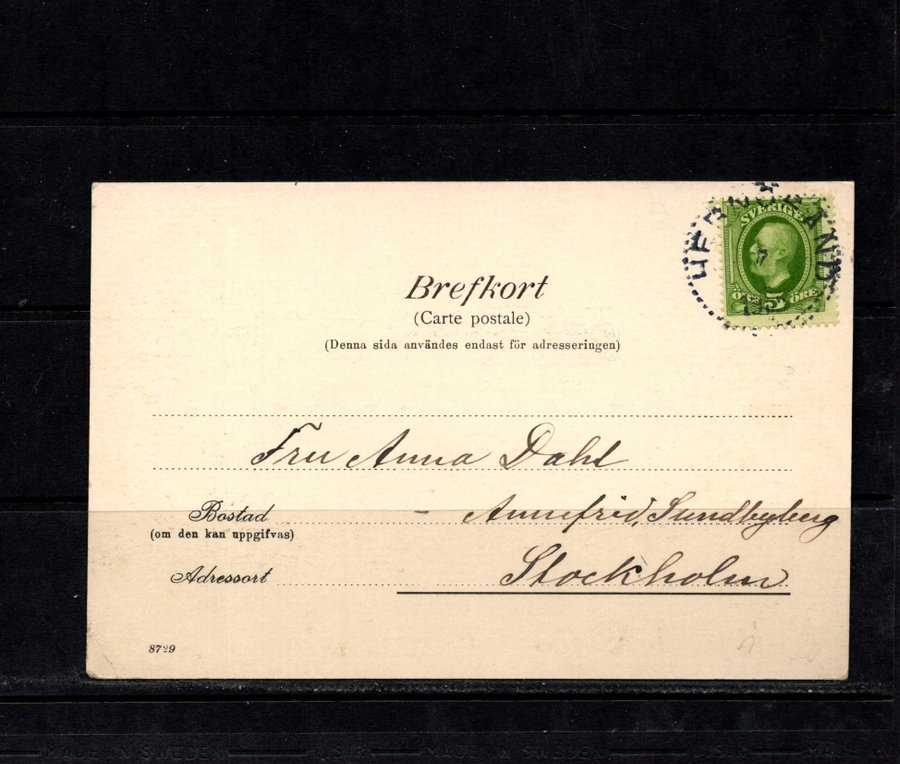 SVERIGE
ÖRE 5 ÖRE
Brefkort
(Carte postale)
(Denna sida användes endast för adresseringen)
Fru Anna Dahl
Bostad
(om den kan uppgifvas)
– Annefrid, Sundbyberg
Adressort
Stockholm
8729
MADE IN SWEDEN